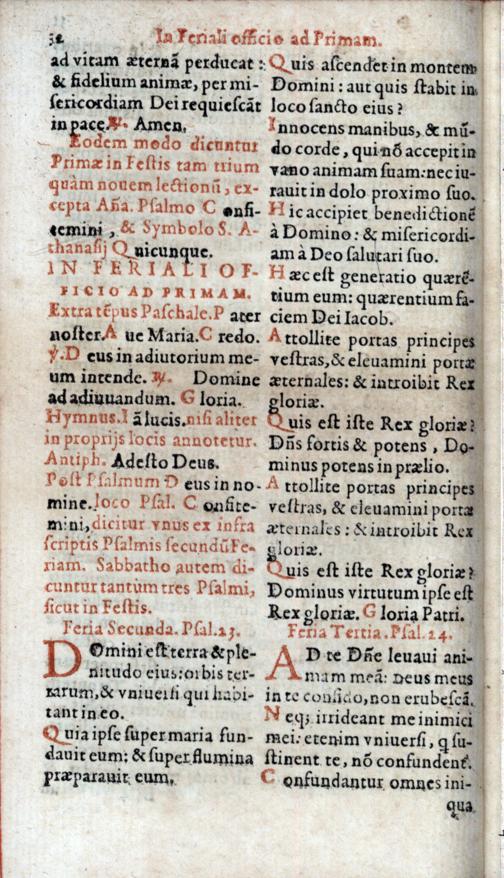 32 In Feriali officio ad Primam.
ad vitam æternã perducat :
& fidelium animæ, per mi-
sericordiam Dei requiescãt
in pace. ℟. Amen.
Eodem modo dicuntur
Primæ in Festis tam trium
quàm nouem lectionũ, ex-
cepta Aña. Psalmo Confi-
temini, & Symbolo S. A-
thanasij Quicunque.
IN FERIALI OF-
FICIO AD PRIMAM.
Extra tẽpus Paschale. Pater
noster. Aue Maria. Credo.
℣. Deus in adiutorium me-
um intende. ℟. Domine
ad adiuuandum. Gloria.
Hymnus. Iã lucis. nisi aliter
in proprijs locis annotetur.
Antiph. Adesto Deus.
Post Psalmum Deus in no-
mine. loco Psal. Confite-
mini, dicitur vnus ex infra
scriptis Psalmis secundũ Fe-
riam. Sabbatho autem di-
cuntur tantùm tres Psalmi,
sicut in Festis.
Feria Secunda. Psal. 23.
DOmini est terra & ple-
nitudo eius: orbis ter-
rarum, & vniuersi qui habi-
tant in eo.
Quia ipse super maria fun-
dauit eum: & super flumina
præparauit eum.
Quis ascendet in montem
Domini: aut quis stabit in
loco sancto eius?
Innocens manibus, & mũ-
do corde, qui nõ accepit in
vano animam suam: nec iu-
rauit in dolo proximo suo.
Hic accipiet benedictionẽ
à Domino: & misericordi-
am à Deo salutari suo.
Hæc est generatio quærẽ-
tium eum: quærentium fa-
ciem Dei Iacob.
Attollite portas principes
vestras, & eleuamini portæ
æternales: & introibit Rex
gloriæ.
Quis est iste Rex gloriæ?
Dñs fortis & potens, Do-
minus potens in prælio.
Attollite portas principes
vestras, & eleuamini portæ
æternales: & introibit Rex
gloriæ.
Quis est iste Rex gloriæ?
Dominus virtutum ipse est
Rex gloriæ. Gloria Patri.
Feria Tertia. Psal. 24.
AD te Dñe leuaui ani-
mam meã: Deus meus
in te confido, non erubescã.
Neq; irrideant me inimici
mei: etenim vniuersi, q su-
stinent te, nõ confundent̃.
Confundantur omnes ini-
qua